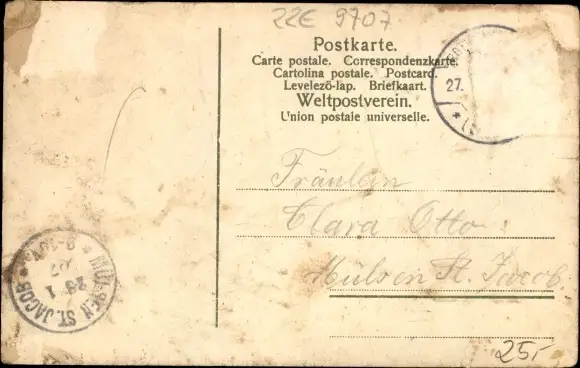 22E 9707
Postkarte.
Carte postale. Correspondenzkarte.
Cartolina postale. Postcard.
Levelező-lap. Briefkaart.
Weltpostverein.
Union postale universelle.
27.
Fräulein
Clara Otto
Mülsen St. Jacob.
MÜLSEN ST. JACOB
07
25,-